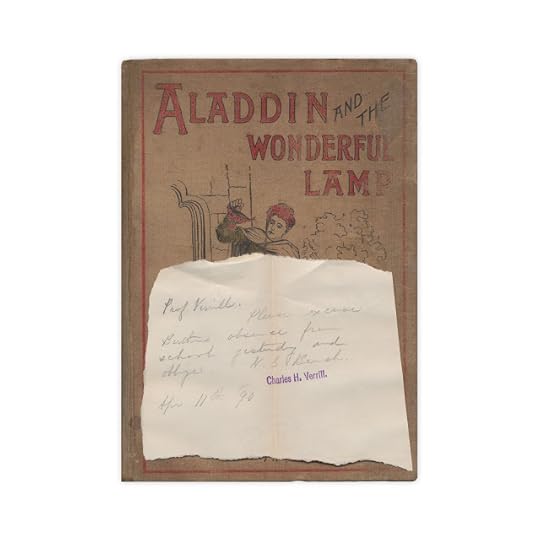 ALADDIN AND THE
WONDERFUL
LAMP
Prof Verrill.
Please excuse
absence from
school yesterday and
oblige
Charles H. Verrill.
Apr 11th 90